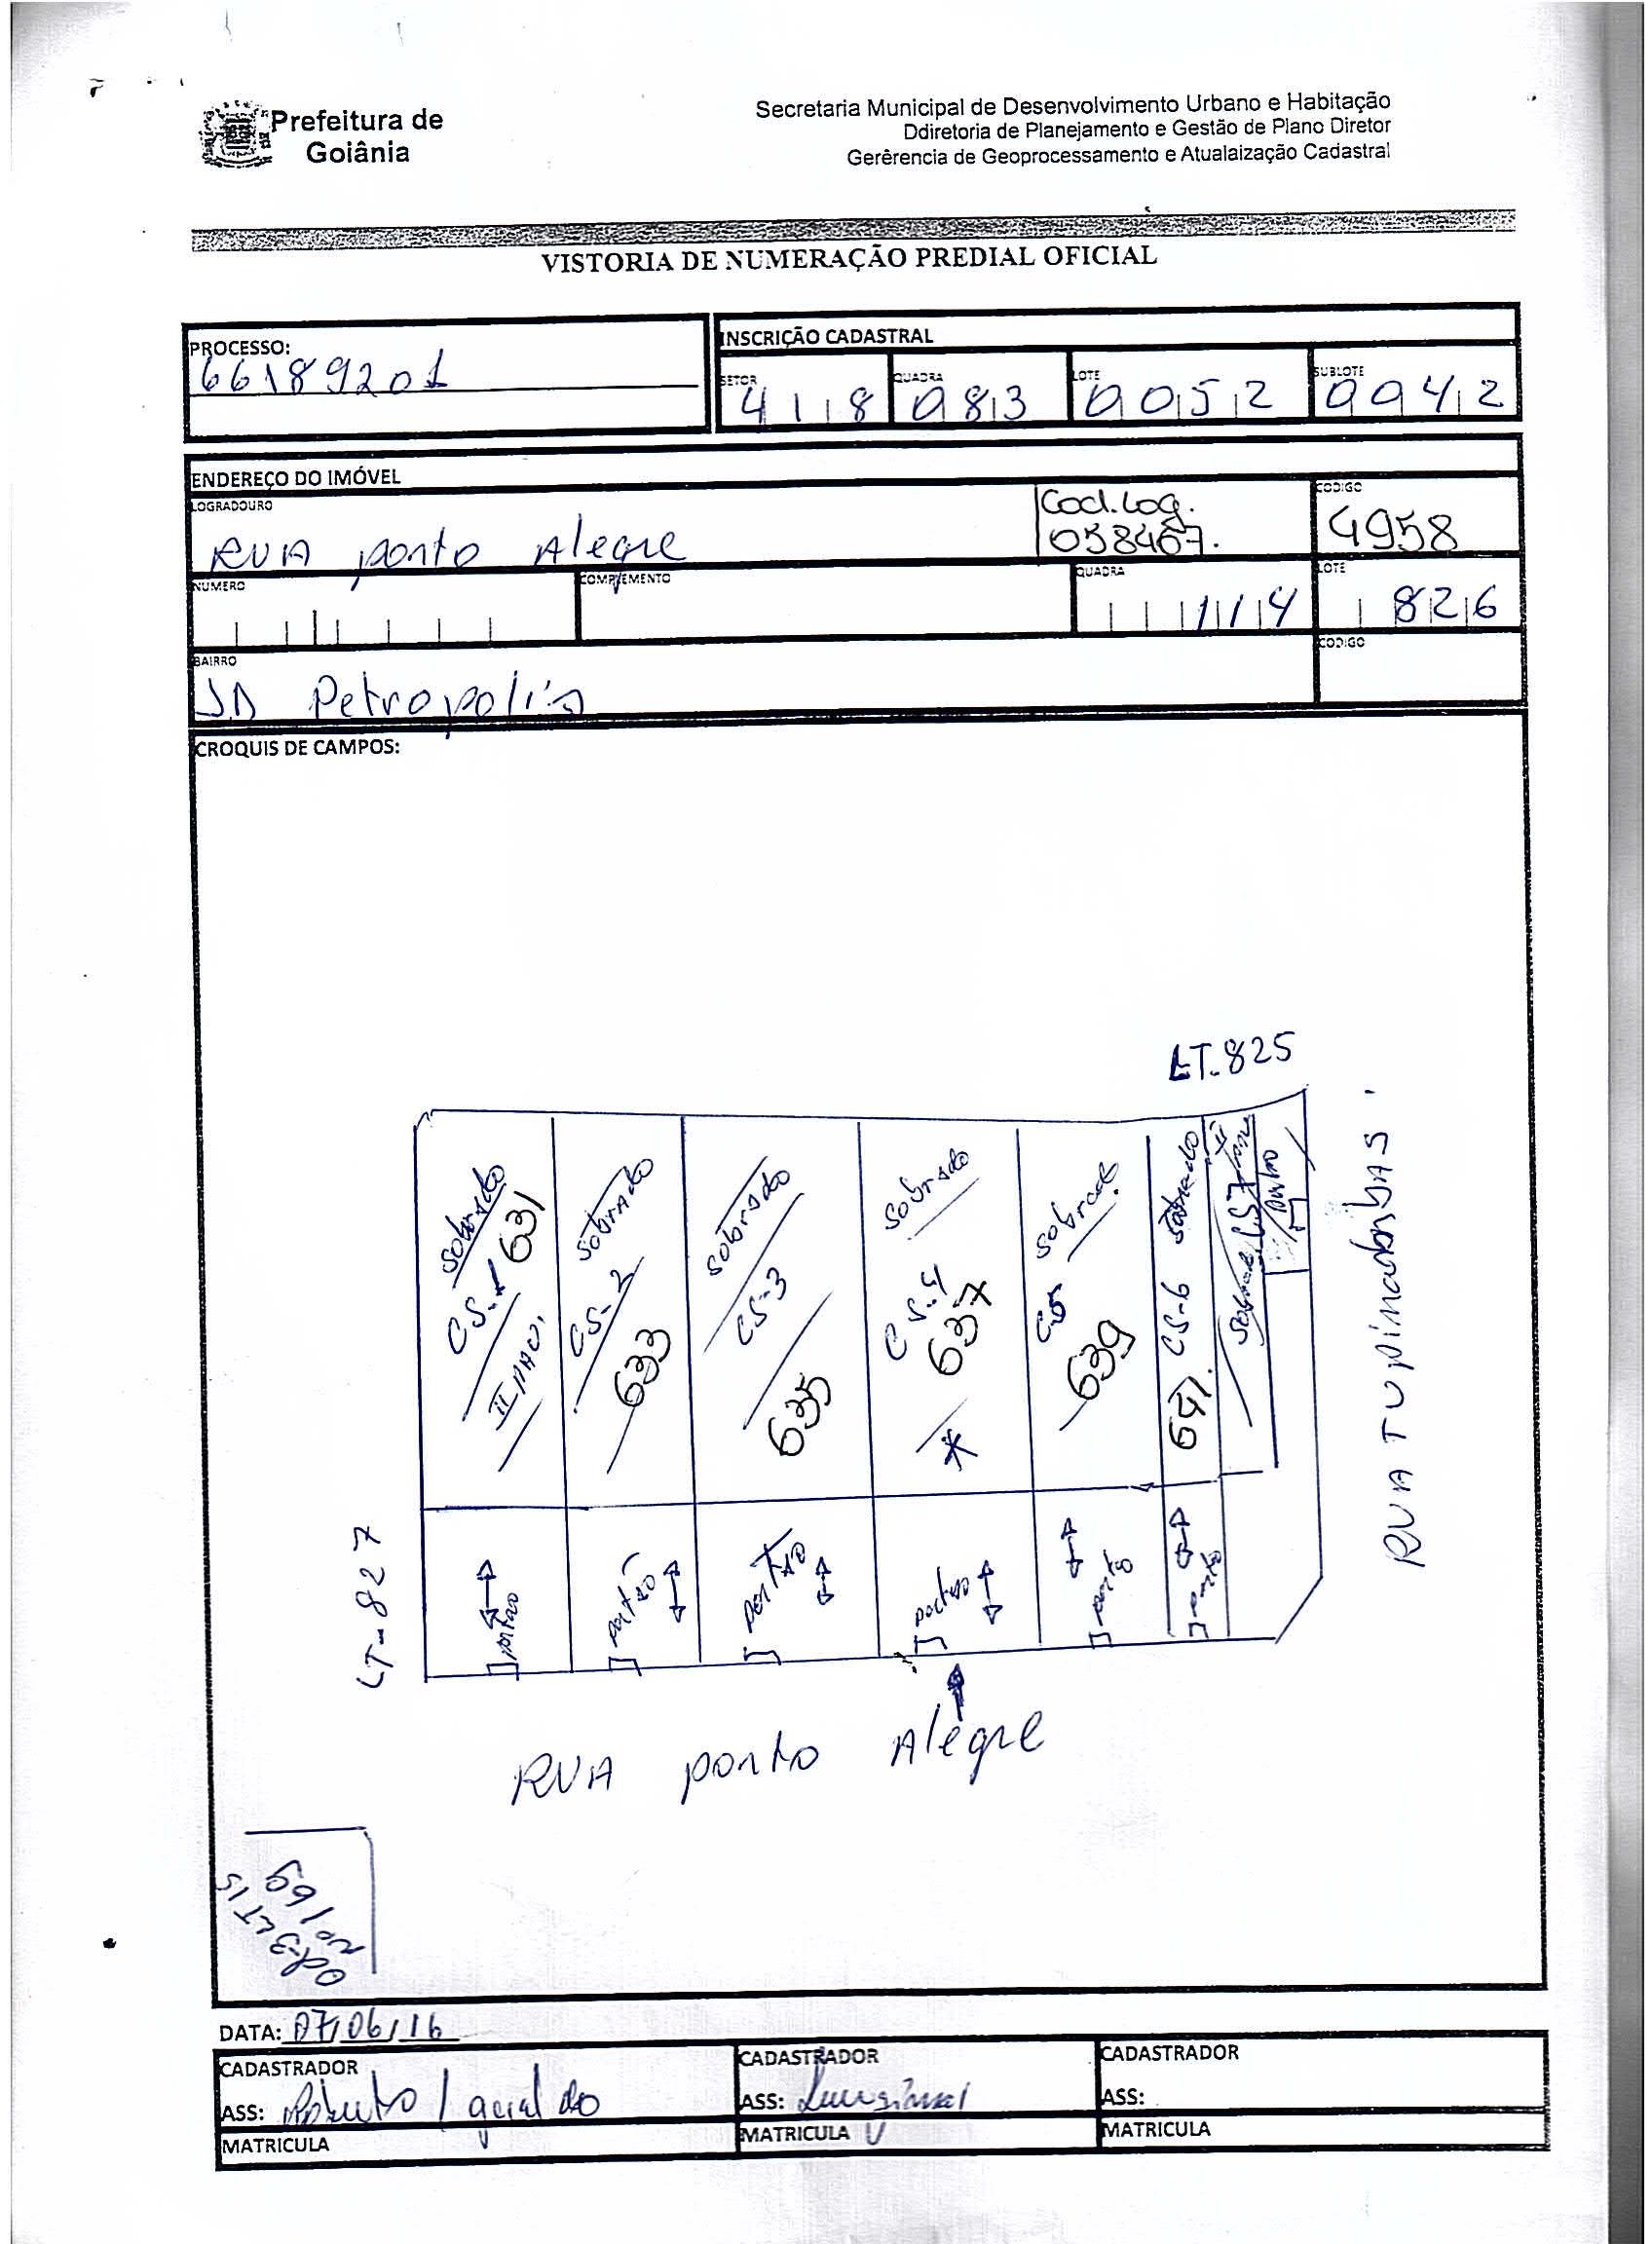 Prefeitura de
Goiânia
Secretaria Municipal de Desenvolvimento Urbano e Habitação
Ddiretoria de Planejamento e Gestão de Plano Diretor
Gerêrencia de Geoprocessamento e Atualaização Cadastral
VISTORIA DE NUMERAÇÃO PREDIAL OFICIAL
PROCESSO:
66189201
INSCRIÇÃO CADASTRAL
SETOR
418
QUADRA
083
LOTE
0052
SUBLOTE
0042
ENDEREÇO DO IMÓVEL
LOGRADOURO
RUA porto Alegre
Cod.Log.
058467.
CODIGO
4958
NUMERO
COMPLEMENTO
QUADRA
114
LOTE
826
BAIRRO
JD Petropolis
CODIGO
CROQUIS DE CAMPOS:
LT.825
sobrado
CS-1 631
sobrado
CS-2
633
sobrado
CS-3
635
sobrado
CS-4
637
*
sobrad.
CS
639
sobrado
CS-6
641.
sobrado CS7
RUA TUpinambas.
LT-827
portao
portão
portão
portao
porto
porto
RUA porto Alegre
Qd-3 LT 15
no 169
DATA: 07/06/16
CADASTRADOR
ASS: Roberto / geraldo
MATRICULA
CADASTRADOR
ASS:
MATRICULA
CADASTRADOR
ASS:
MATRICULA